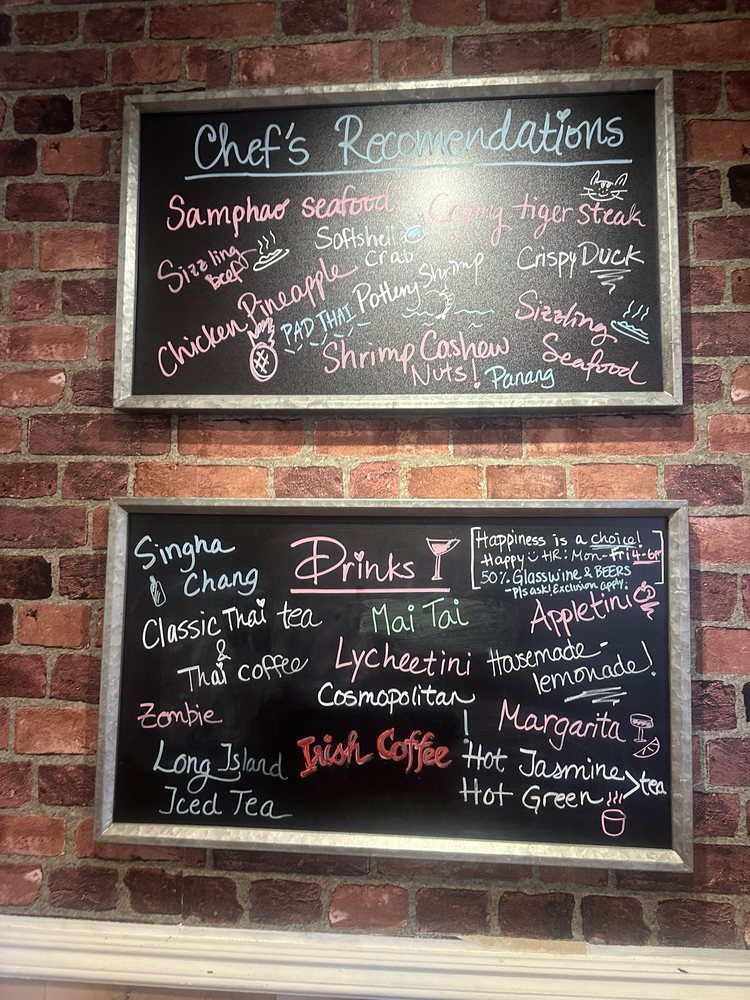 Chef's Recomendations
Samphao seafood
Crying tiger steak
Sizzling
Beef
Softshell
Crab
Crispy Duck
Chicken Pineapple
PAD THAI
Pottery Shrimp
Sizzling
Seafood
Shrimp Cashew
Nuts!
Panang
Singha
Chang
Drinks
[Happiness is a choice!]
Happy HR: Mon-Fri 4-6pm
50% Glass wine & BEERS
-Pls ask! Exclusion apply.
Classic Thai tea
&
Thai coffee
Mai Tai
Appletini
Lycheetini
Housemade-
lemonade!
Cosmopolitan
Zombie
Margarita
Long Island
Iced Tea
Irish Coffee
Hot Jasmine
Hot Green >tea